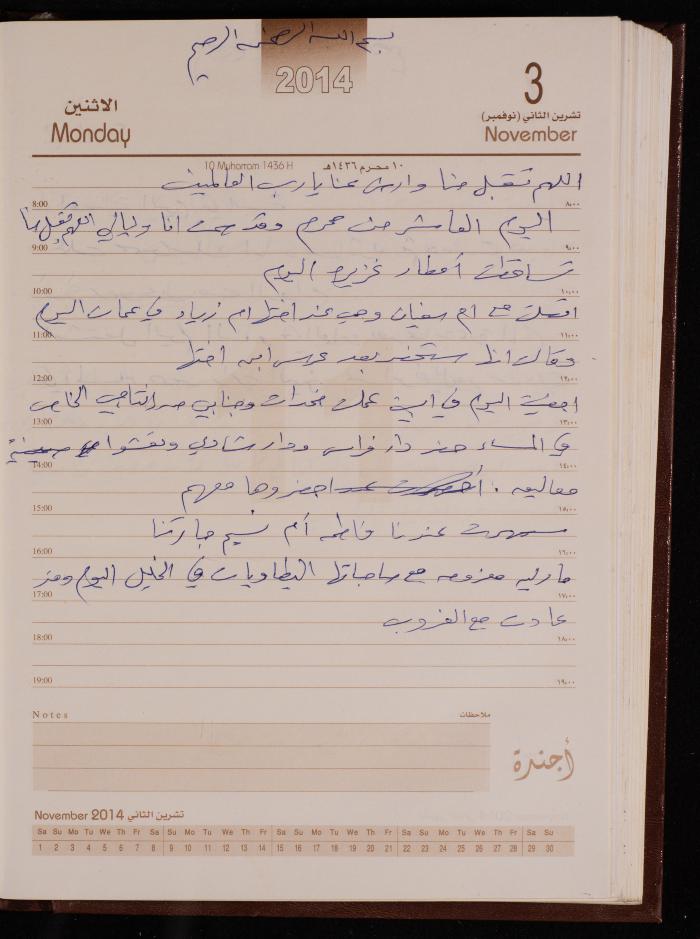 بسم الله الرحمن الرحيم
2014
3
الاثنين
تشرين الثاني (نوفمبر)
Monday
November
10 Muharram 1436 H
١٠ محرم ١٤٣٦هـ
اللهم تقبل منا وارض عنا يا رب العالمين
8:00 ٨:٠٠
اليوم العاشر من محرم وقد صمت انا وليالي اللهم تقبل منا
9:00 ٩:٠٠
تساقطت أمطار غزيرة اليوم
10:00 ١٠:٠٠
اتصلت مع ام سفيان وهي عند اختها ام زياد في عمان اليوم
11:00 ١١:٠٠
وقالت انها ستحضر بعد عرس ابن اختها
12:00 ١٢:٠٠
اليوم في عمل مخدات وجنابي
13:00 ١٣:٠٠
في المساء حضر دار فراس ودار شادي وتعشوا صينية
14:00 ١٤:٠٠
معاليه. احضروها معهم
15:00 ١٥:٠٠
سهرت عندنا فاطمه أم نسيم جارتنا
16:00 ١٦:٠٠
معزومه مع صاحباتها في الخليل اليوم
17:00 ١٧:٠٠
عادت مع الغروب
18:00 ١٨:٠٠
19:00 ١٩:٠٠
Notes ملاحظات
أجندة
November 2014 تشرين الثاني
Sa Su Mo Tu We Th Fr Sa Su Mo Tu We Th Fr Sa Su Mo Tu We Th Fr Sa Su Mo Tu We Th Fr Sa Su
1 2 3 4 5 6 7 8 9 10 11 12 13 14 15 16 17 18 19 20 21 22 23 24 25 26 27 28 29 30